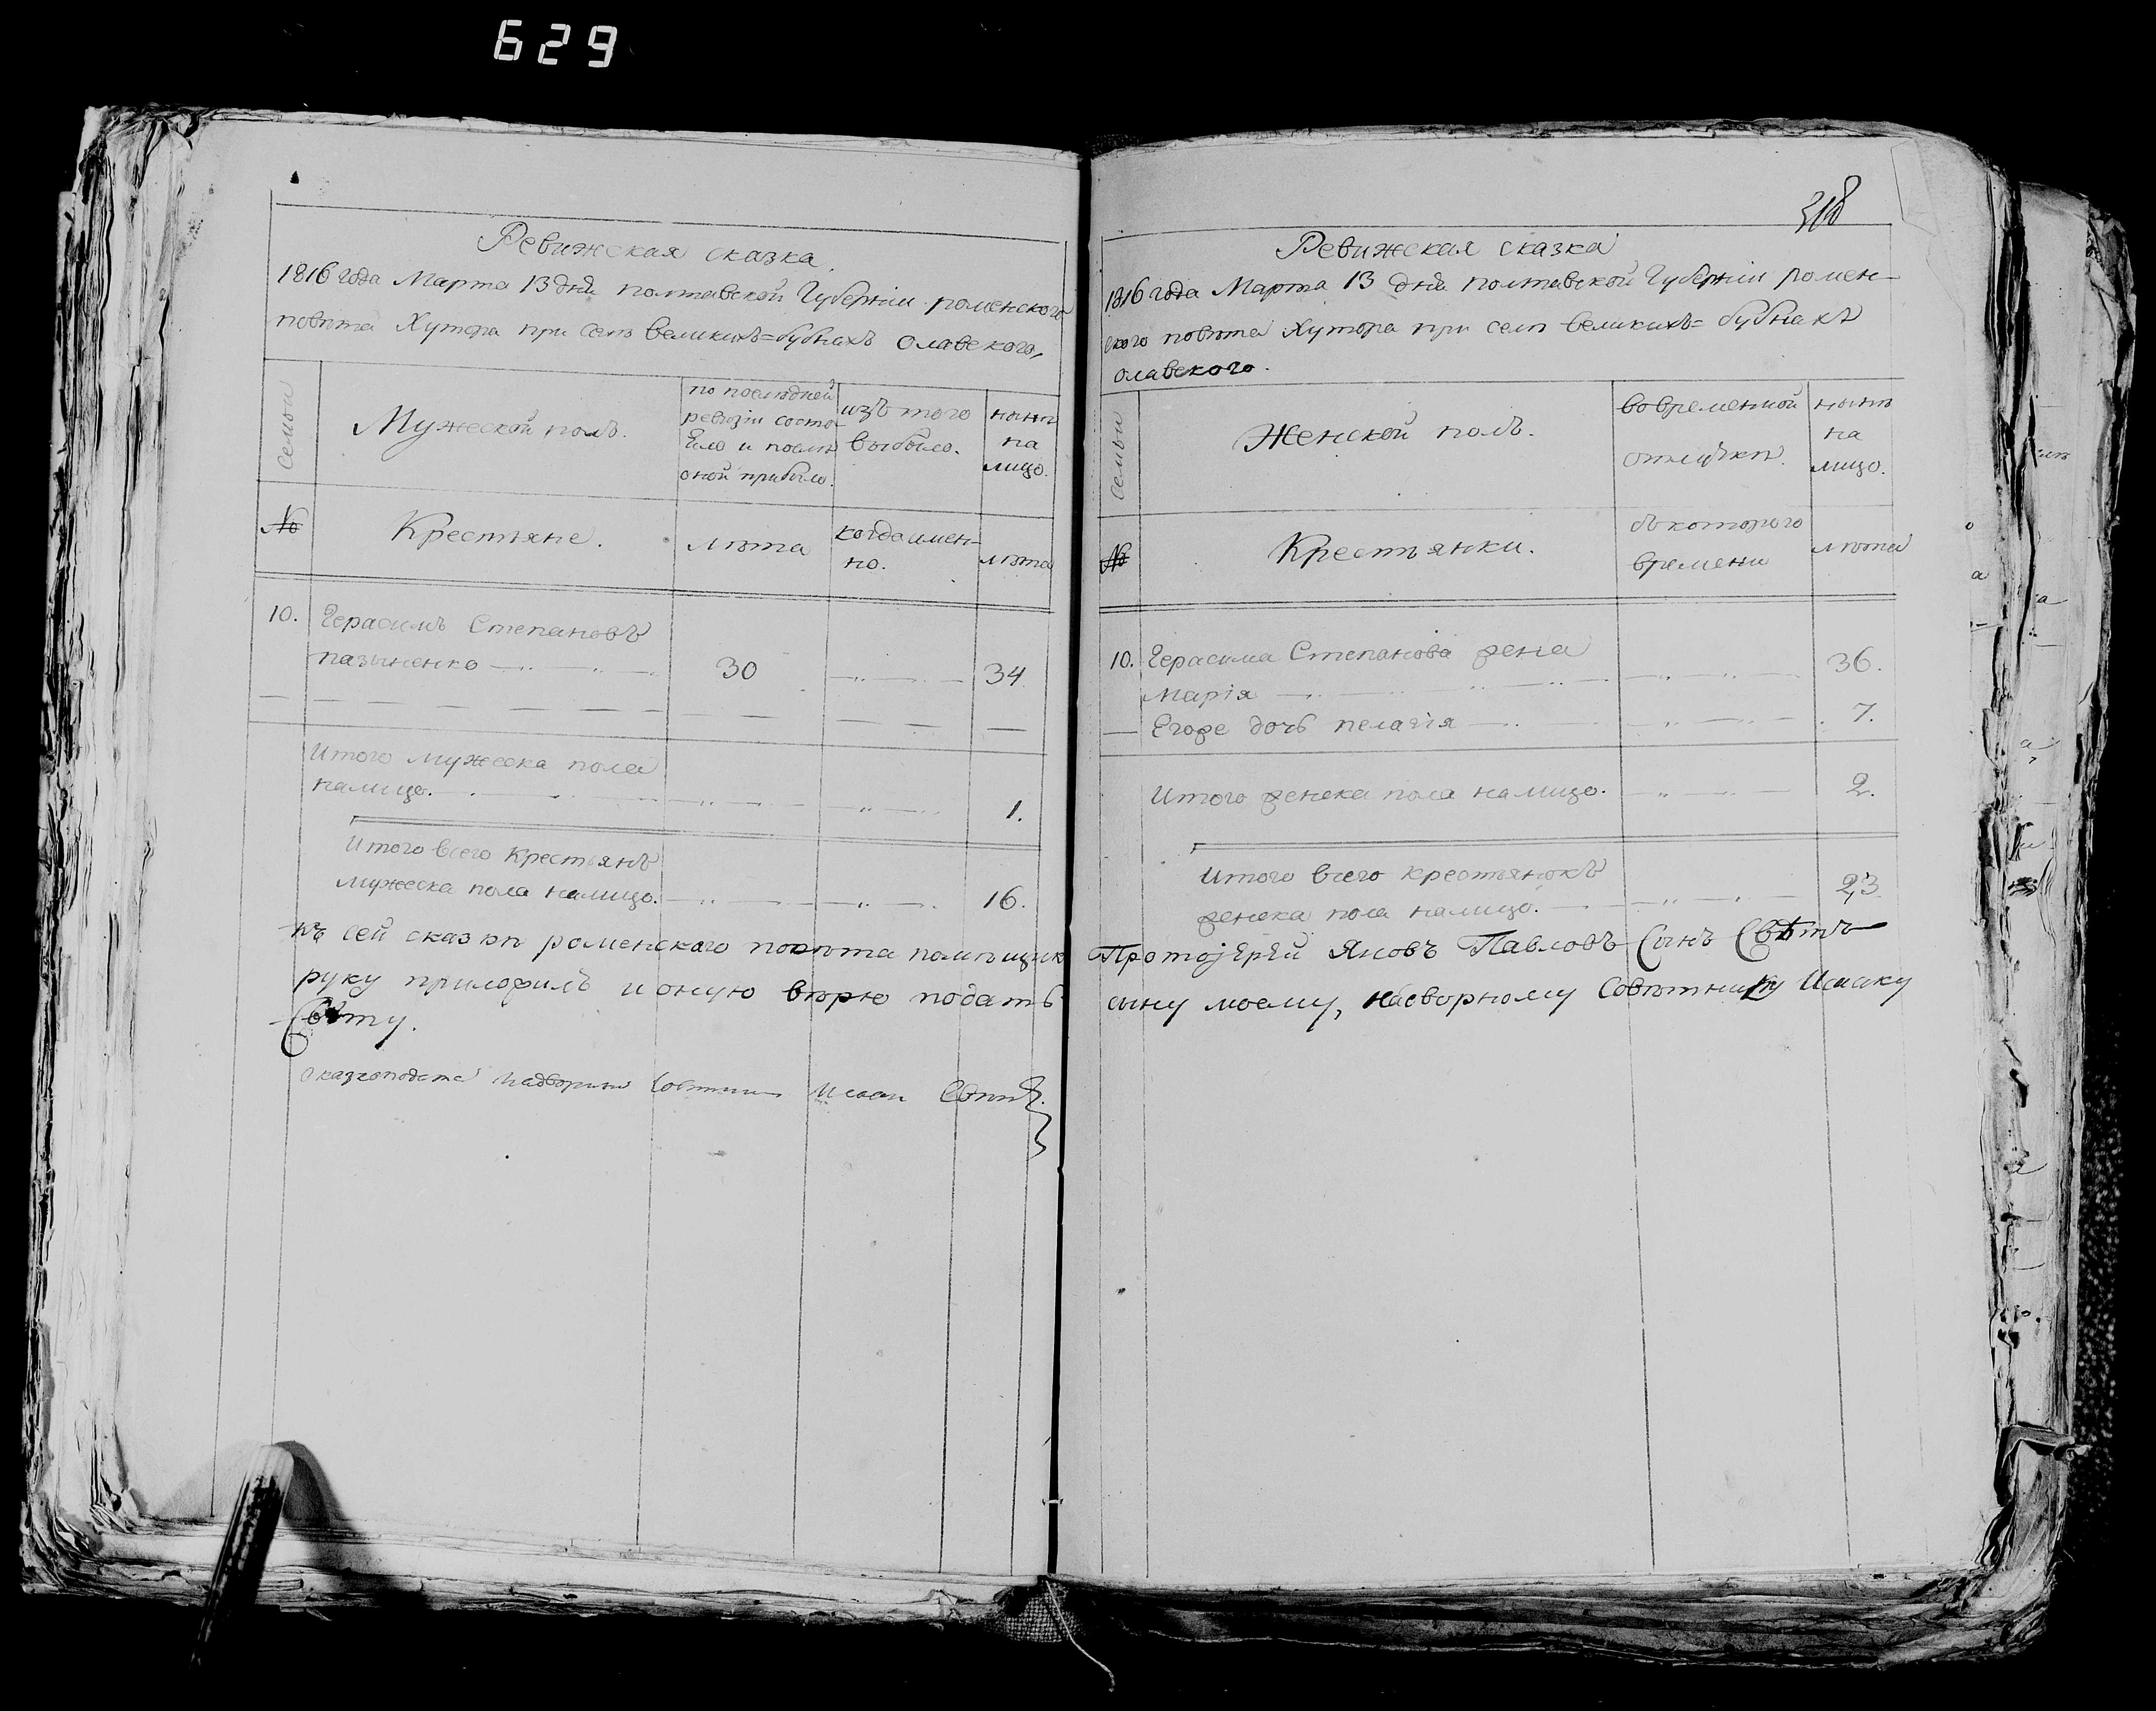 629
Ревижская сказка.
1816 года Марта 13 дня полтавской Губерніи роменского
повѣта Хутора при селѣ великихъ=бубнахъ олавского,
Семьи
Мужеской полъ.
по последней
ревизіи состо
яло и послѣ
оной прибыло.
изъ того
выбыло.
нынѣ
на
лицо.
№
Крестьяне.
лѣта
когда имен-
но.
лѣта
10. Герасимъ Степановъ
30 34
Итого мужеска пола
налицо. 1.
Итого всего крестьянъ
мужеска пола налицо. 16.
318
Ревижская сказка
1816 года Марта 13 дня полтавской Губерніи ромен-
ского повѣта Хутора при селѣ великихъ=бубнахъ
олавского.
Семьи
Женской полъ.
во временной
отлучкѣ.
нынѣ
на
лицо.
№
Крестьянки.
съ которого
времени
лѣта
10. Герасима Степанова жена
Марія 36.
Егоже дочь пелагія 7.
Итого женска пола налицо. 2.
Итого всего крестьянокъ
женска пола налицо. 23
къ сей сказкѣ роменского повѣта помѣщикъ Протоіерей Яковъ Павловъ Сынъ Свѣтъ
руку приложилъ и оную вѣрю подать сыну моему, надворному Совѣтнику Исааку
Свѣту.
сказкоподатель Надворный Совѣтникъ Исаакъ Свѣтъ.